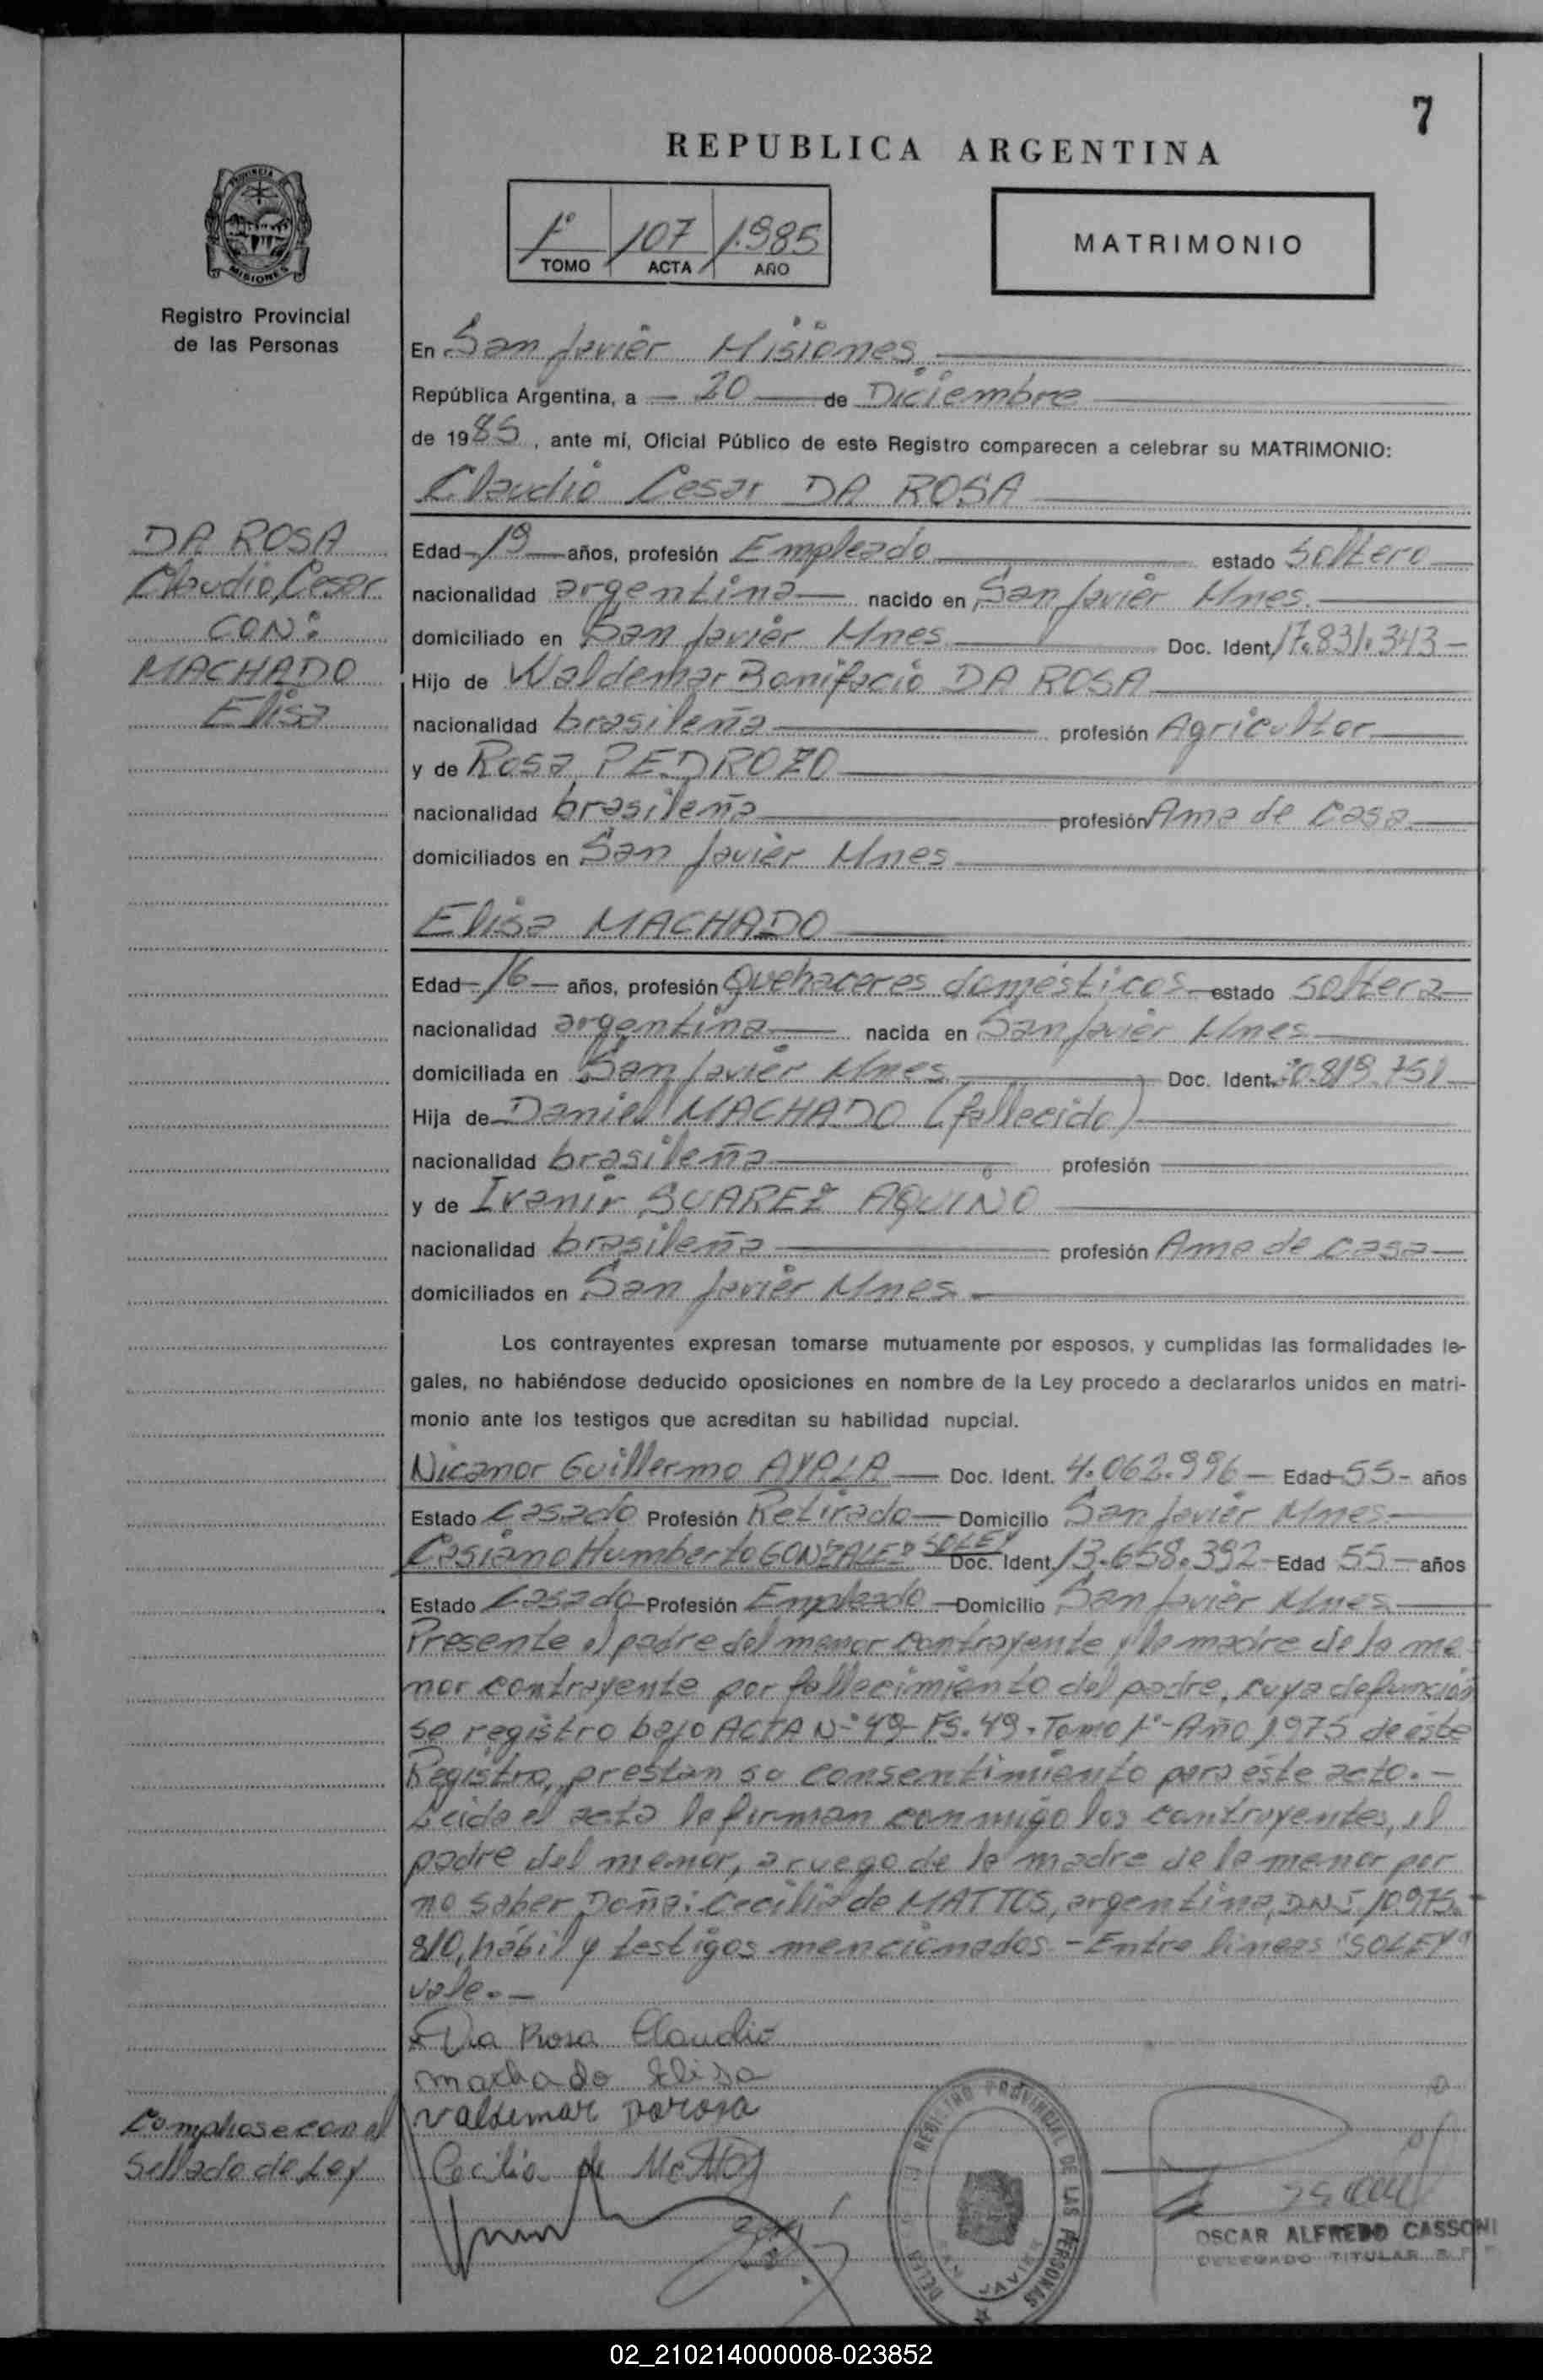 7
REPUBLICA ARGENTINA
1º 107 1.985
TOMO ACTA AÑO
MATRIMONIO
PROVINCIA
MISIONES
Registro Provincial
de las Personas
En San Javier Misiones
República Argentina, a 20 de Diciembre
de 1985, ante mí, Oficial Público de este Registro comparecen a celebrar su MATRIMONIO:
Claudio Cesar DA ROSA
DA ROSA
Claudio Cesar
CON:
MACHADO
Elisa
Edad 19 años, profesión Empleado estado Soltero
nacionalidad argentina nacido en San Javier Mnes.
domiciliado en San Javier Mnes Doc. Ident. 17.831.343
Hijo de Waldemar Bonifacio DA ROSA
nacionalidad brasileña profesión Agricultor
y de Rosa PEDROZO
nacionalidad brasileña profesión Ama de Casa
domiciliados en San Javier Mnes
Elisa MACHADO
Edad 16 años, profesión quehaceres domésticos estado soltera
nacionalidad argentina nacida en San Javier Mnes
domiciliada en San Javier Mnes Doc. Ident. 20.819.751
Hija de Daniel MACHADO (fallecido)
nacionalidad brasileña profesión
y de Ivanir SUAREZ AQUINO
nacionalidad brasileña profesión Ama de casa
domiciliados en San Javier Mnes
Los contrayentes expresan tomarse mutuamente por esposos, y cumplidas las formalidades le-
gales, no habiéndose deducido oposiciones en nombre de la Ley procedo a declararlos unidos en matri-
monio ante los testigos que acreditan su habilidad nupcial.
Nicanor Guillermo AYALA Doc. Ident. 4.062.996 Edad 55 años
Estado Casado Profesión Retirado Domicilio San Javier Mnes
Casiano Humberto GONZALEZ SOLEY Doc. Ident. 13.658.392 Edad 55 años
Estado Casado Profesión Empleado Domicilio San Javier Mnes
Presente el padre del menor contrayente y la madre de la me
nor contrayente por fallecimiento del padre, cuya defunción
se registro bajo ACTA Nº 49- Fs. 49- Tomo 1º- Año 1975 de este
Registro, prestan su consentimiento para este acto.-
Leida el acta la firman conmigo los contrayentes, el
padre del menor, a ruego de la madre de la menor por
no saber Doña: Cecilia de MATTOS, argentina, DNI 10.975.
810, hábil y testigos mencionados.- Entre lineas "SOLEY"
vale.-
Da Rosa Claudio
machado Elisa
Valdemar Darosa
Cecilia de Mattos
Complase con el
Sellado de Ley
REGISTRO PROVINCIAL DE LAS PERSONAS
OSCAR ALFREDO CASSONI
DELEGADO TITULAR
02_210214000008-023852